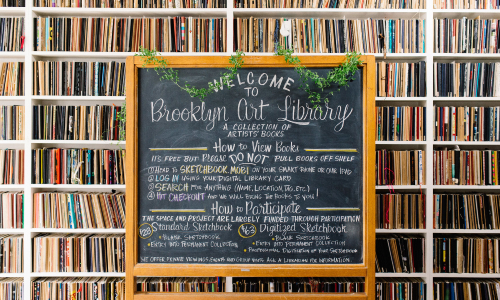 WELCOME
TO
Brooklyn Art Library
A COLLECTION OF
ARTISTS' BOOKS
How to View Books
IT'S FREE BUT PLEASE DO NOT PULL BOOKS OFF SHELF
① HEAD TO SKETCHBOOK.MOBI ON YOUR SMART PHONE OR OUR
② LOG IN USING YOUR DIGITAL LIBRARY CARD
③ SEARCH FOR ANYTHING (NAME, LOCATION, TAG, ETC.)
④ HIT CHECKOUT AND WE WILL BRING THE BOOKS TO YOU!
How to Participate
THE SPACE AND PROJECT ARE LARGELY FUNDED THROUGH PARTICIPATION
Standard Sketchbook
Digitized Sketchbook
SKETCHBOOK
ENTRY INTO PERMANENT COLLECTION
SKETCHBOOK
ENTRY INTO PERMANENT COLLECTION
PROFESSIONAL DIGITIZATION OF YOUR SKETCHBOOK
ASK A LIBRARIAN FOR INFORMATION